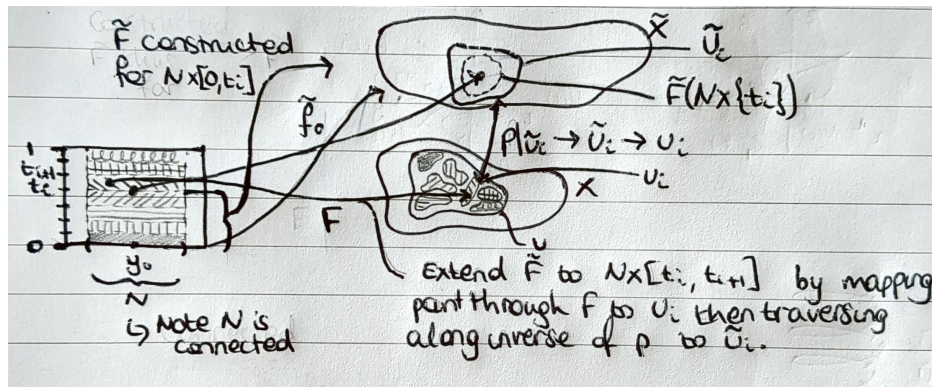 F̃ constructed
for N×[0,tᵢ]
f̃₀
X̃
Ũᵢ
F̃(N×{tᵢ})
p|ũᵢ → Ũᵢ → Uᵢ
1
tᵢ₊₁
tᵢ
0
F
X
Uᵢ
U
y₀
N
↳ Note N is
connected
Extend F̃ to N×[tᵢ, tᵢ₊₁] by mapping
point through F to Uᵢ then traversing
along inverse of p to Ũᵢ.